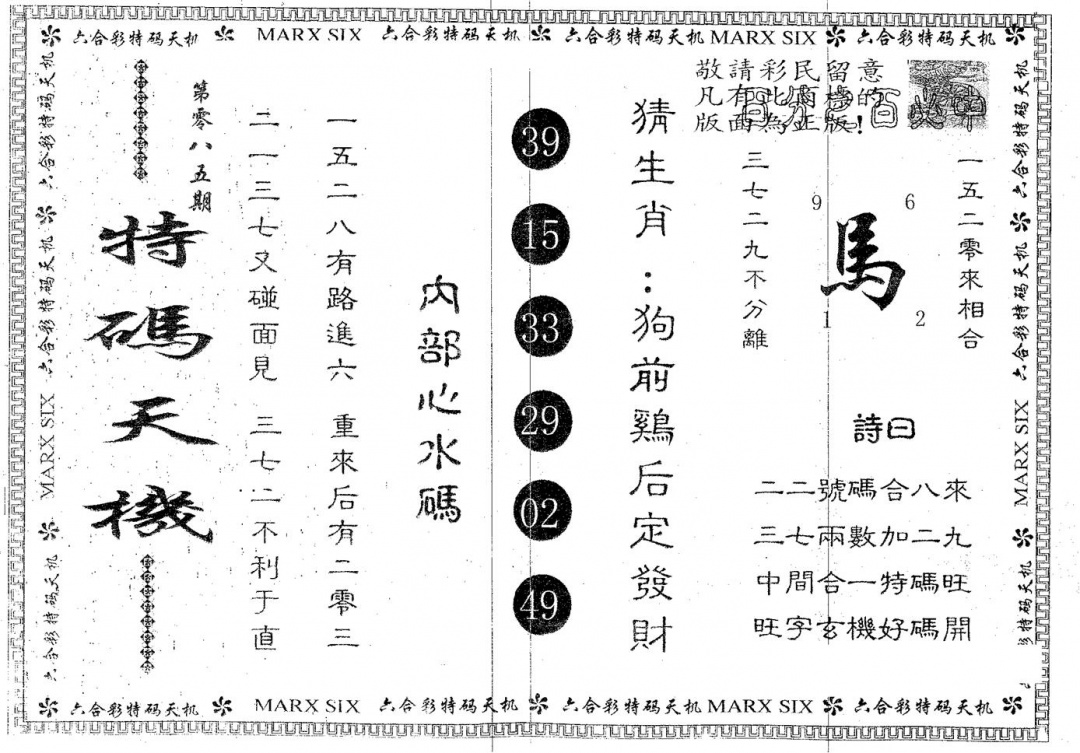 六合彩特码天机 MARX SIX 六合彩特码天机 六合彩特码天机 MARX SIX 六合彩特码天机
敬請彩民留意
凡有此商標的
版面為正版!
一五二零來相合
6
9
馬
2
1
三七二九不分離
詩曰
二二號碼合八來
三七兩數加二九
中間合一特碼旺
旺字玄機好碼開
猜生肖:狗前鷄后定發財
39
15
33
29
02
49
內部心水碼
一五二八有路進六 重來后有二零三
二一三七又碰面見 三七二不利于直
第零八五期
特碼天機
六合彩特码天机 六合彩特码天机 MARX SIX 六合彩特码天机
六合彩特码天机 六合彩特码天机 MARX SIX 彩特码天机
六合彩特码天机 MARX SIX 六合彩特码天机 六合彩特码天机 MARX SIX 六合彩特码天机